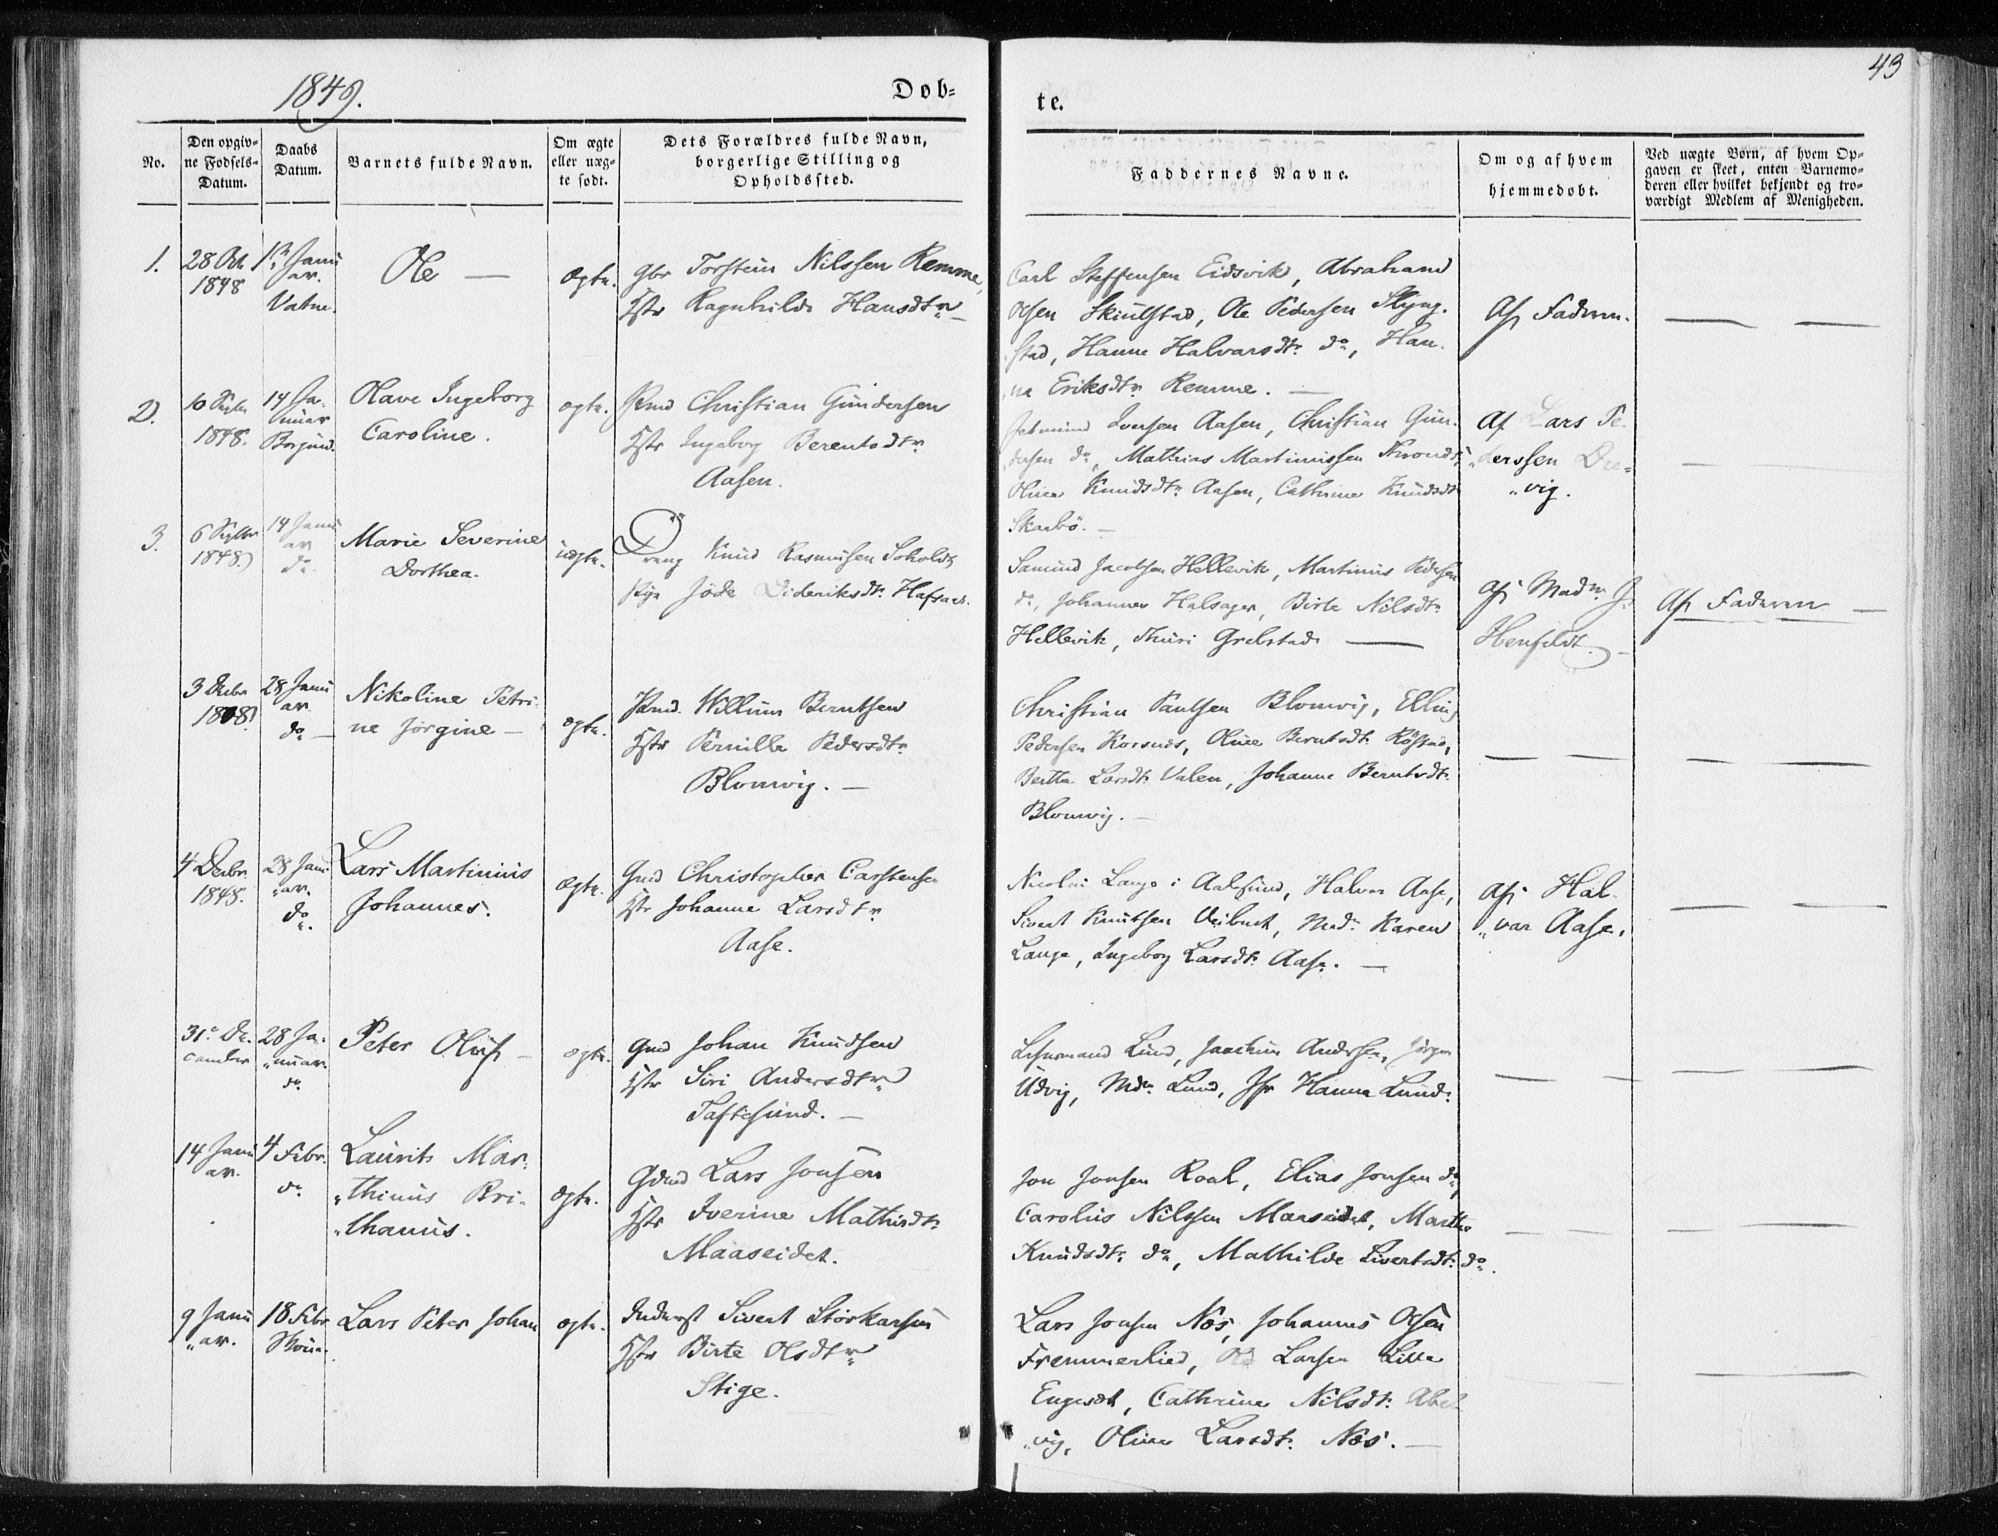 1849.
Døb-
te.
43
No.
Den opgiv-
ne Fødsels-
Datum.
Daabs
Datum.
Barnets fulde Navn.
Om ægte
eller uæg-
te født.
Dets Forældres fulde Navn,
borgerlige Stilling og
Opholdssted.
Faddernes Navne.
Om og af hvem
hjemmedøbt.
Ved uægte Børn, af hvem Op-
gaven er skeet, enten Barnemo-
deren eller hvilket bekjendt og tro-
værdigt Medlem af Menigheden.
1.
28 Oct
1848
1ste Janu
ar.
Vatne.
Ole —
ægte.
Gbr Torstein Nilssen Remme,
Hstr Ragnhilde Hansdtr
Carl Steffensen Eidsvik, Abraham
Olsen Skiulstad, Ole Pedersen Slyng-
stad, Hanne Halvarsdtr do, Han-
na Eriksdtr Remme. —
Af Faderen.
2.
10
1848.
14 Ja-
nuar
Borgund.
Olave Ingeborg
Caroline.
ægte.
Christian Gundersen
Hstr Ingeborg Berentsdtr
Aasen.
Iversen Aasen, Christian Gun-
dersen do, Mathias Martinussen
Oline Knudsdtr Aasen, Cathrine Knudsdtr
Skarbö. —
Af Lars Pe-
derssen Dre-
vig.
3.
6 Septbr
1848.
14 Janu
ar
do
Marie Severine
Dorthea.
uægte.
Dreng Knud Rasmusen Soholdt
Pige Jöde Dideriksdtr Hafsaas.
Samund Jacobsen Hellevik, Martinus Pedersen
do, Johannes Halsager, Birte Nilsdtr
Hellevik, Thuri Grebstad —
Af Madm J.
Henfeldt.
Af Faderen —
3 Decbr
1848.
28 Janu
ar
do —
Nikoline Petri-
ne Jörgine —
ægte.
Willum Berntsen
Hstr Pernille Pedersdtr
Blomvig. —
Christian Paulsen Blomvig, Elling
Pedersen Korsnes, Oline Berntsdtr
Berthe Larsdtr Valen, Johanne Berntsdtr
Blomvig. —
4 Decbr
1848.
28 Janu
ar.
do.
Lars Martinius
Johannes.
ægte.
Gmd Christopher Carstensen
Hstr Johanne Larsdtr
Aase.
Nicolai Lange i Aalesund, Halvar Aase,
Sivert Knutsen Veibust, Md. Karen
Lange, Ingeborg Larsdtr Aase. —
Af Hal-
var Aase.
31te De-
cember
28 Ja-
nuar.
do
Peter Oluf —
ægte.
Gmd Johan Knudsen
Hstr Siri Andersdtr
Taftesund. —
Lund, Joachim Andersen, Jörgen
Udvig, Mdm Lund, Jfr Hanna Lund.
14 Janu
ar.
4 Febr.
do
Laurits Mar-
thinus Bri-
thanus.
ægte.
Gdmd Lars Jonsen
Hstr Iverine Mathisdtr
Maaseidet.
Jon Jonsen Roal, Elias Jonsen do
Carolus Nilssen Maaseidet, Marthe
Knudsdtr do, Mathilde Sivertsdtr do.
9 Janu
ar.
18 Febr
Lars Peter Johan
ægte.
Inderst Sivert Storkarsen
Hstr Birte Olsdtr
Stige.
Lars Jonsen Nos, Johannes Olsen
Fremmerlied, Ole Larsen Lille
Engeset, Cathrine Nilsdtr Abel-
vig, Oline Larsdtr Nos. —